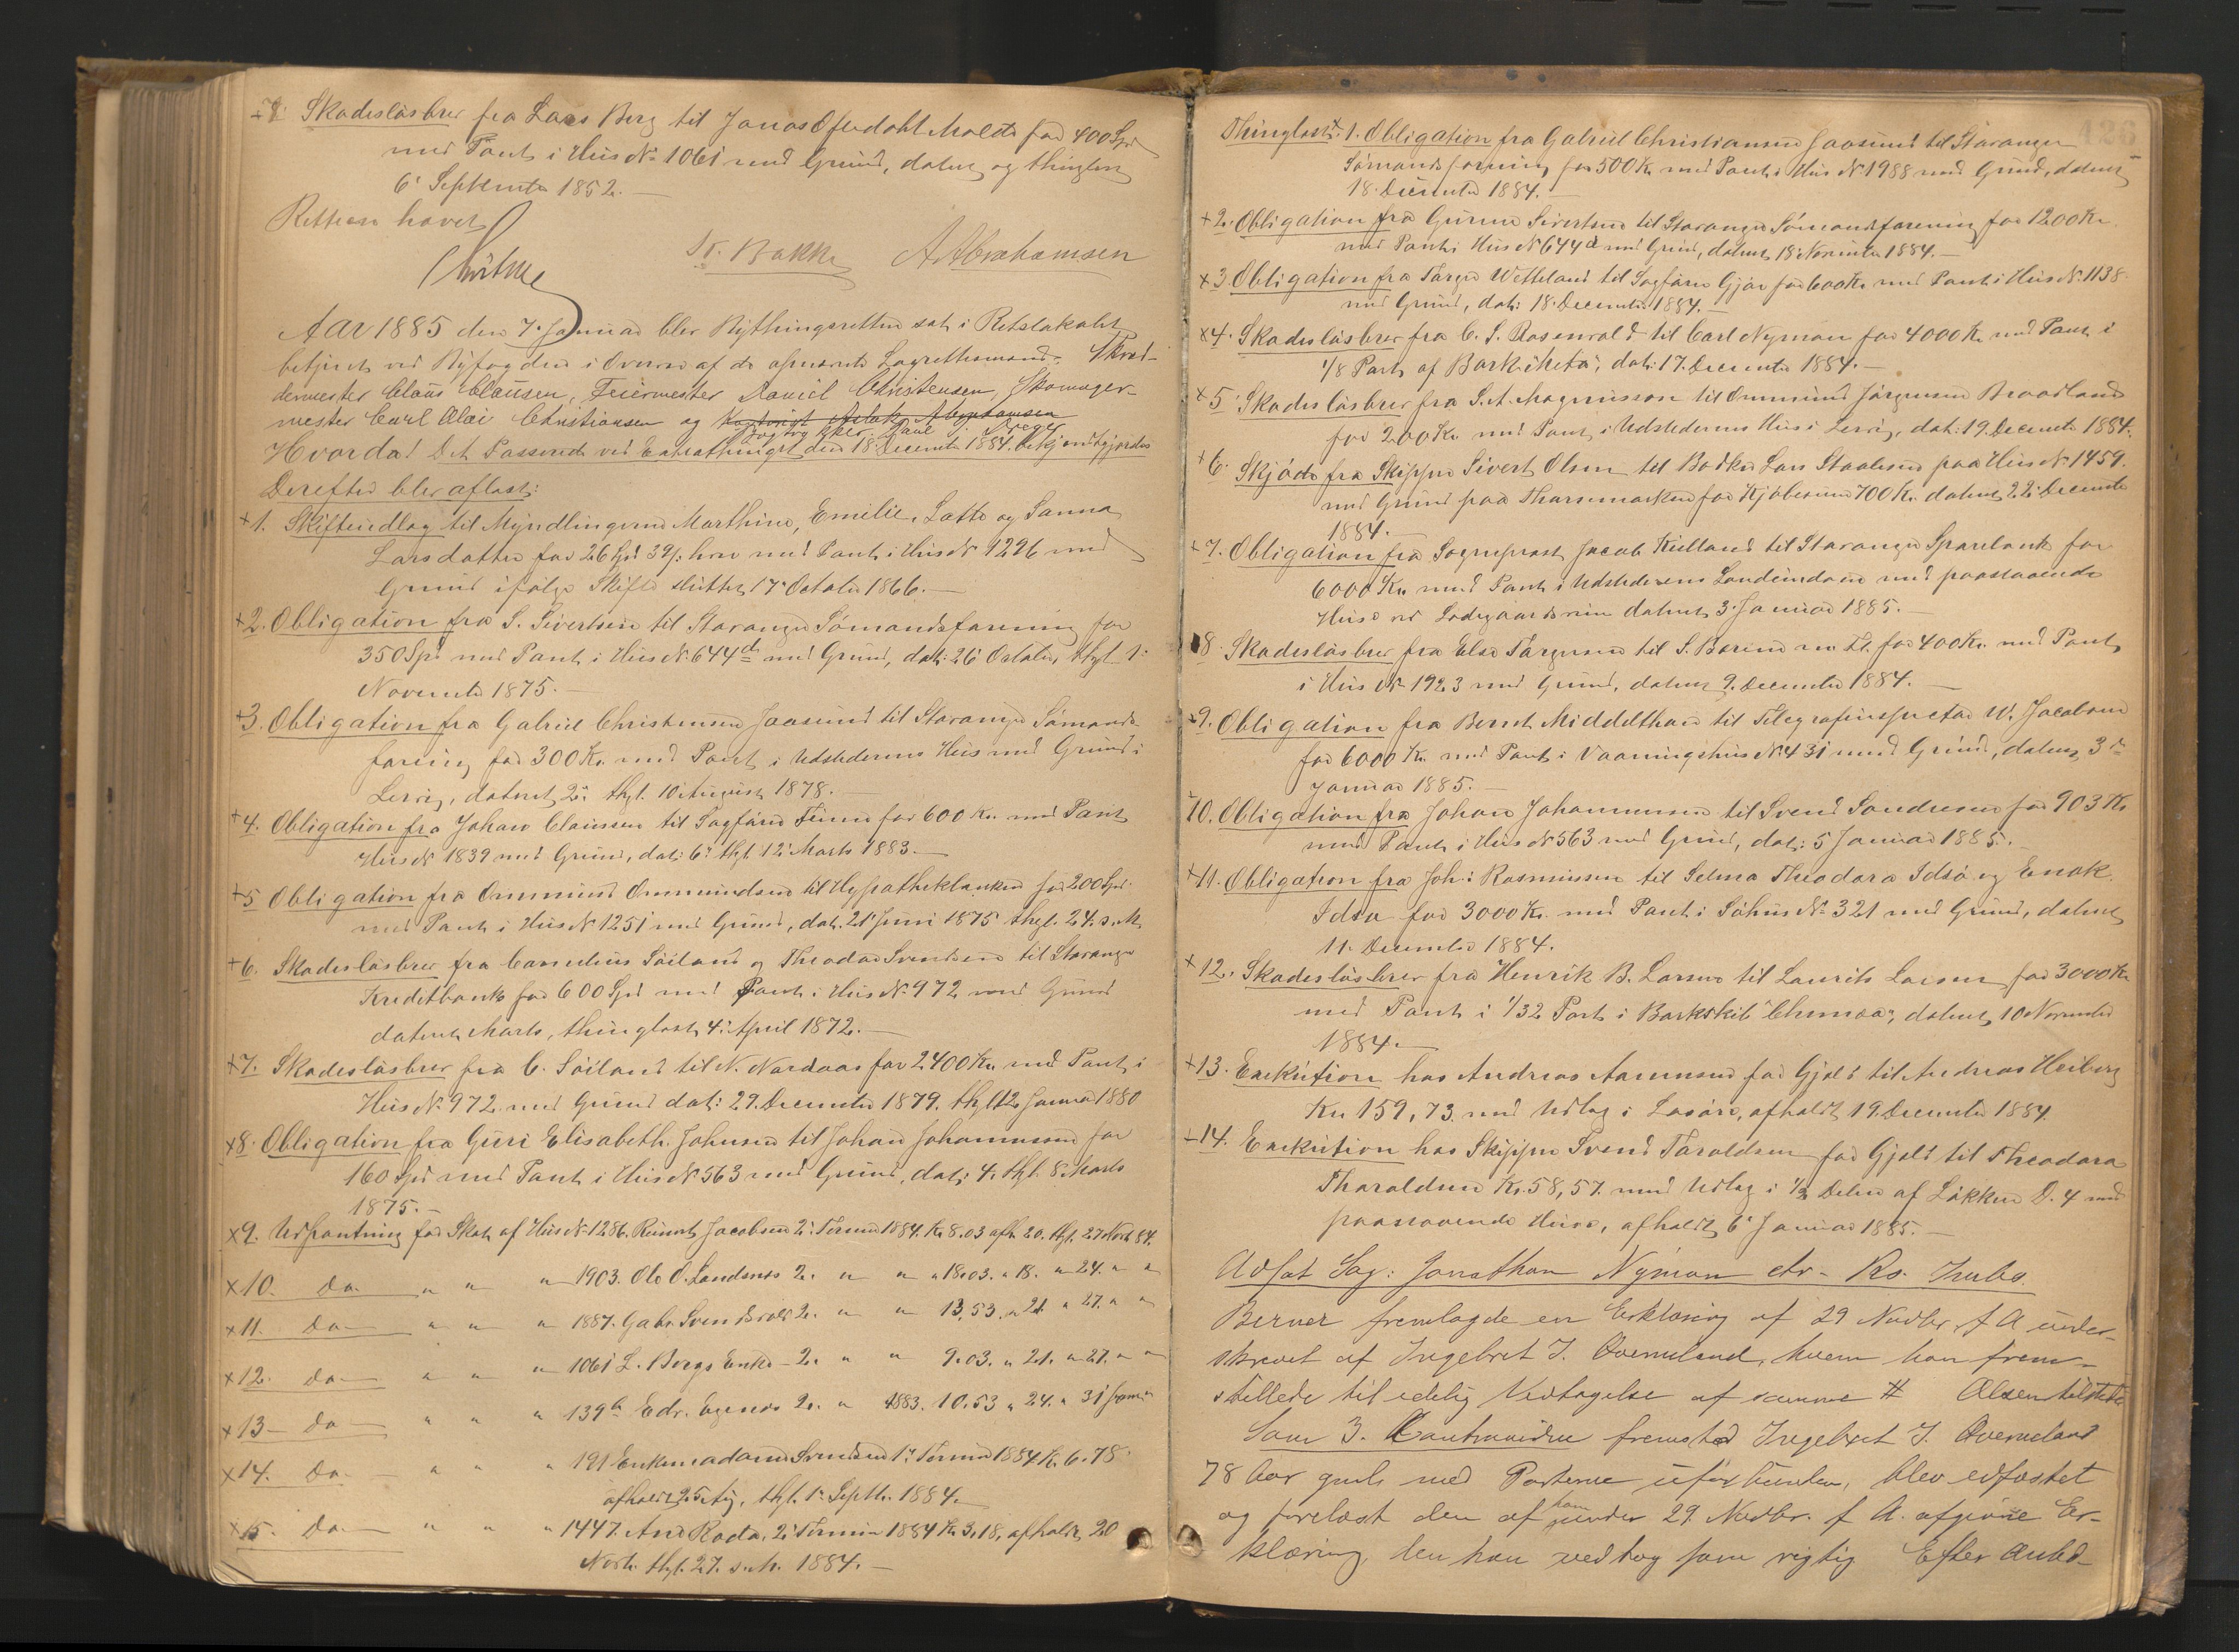 7. Skadesløsbrev fra Lars Berg til Jonas Oftedahl Malde for 400 Spd
med Pant i Hus No 1061 med Grund, dateret og thinglæst
6' September 1852. —
Retten hævet
St. Bakke A Abrahamsen
Aar 1885 den 7. Januar blev Bythingsretten sat i Retslokalet
betjent ved Byfogden i Overvær af de opnævnte Lagrettesmænd: Skræd-
dermester Claus Clausen, Feiermester Daniel Christensen, Skomager-
mester Carl Olai Christiansen og Kjøbmd Aslak Abrahamsen
Bogtrykker Paul T. Dreyer
Hvorda! Det Passerede ved Extrathinget den 18 December 1884 bekjendtgjordes
Derefter blev aflæst:
+1. Skifteudlæg til Myndlingerne Marthine, Emilie, Lotte og Sanna
Larsdatter for 26 Spd 39 s. hver med Pant i Hus No 1296 med
Grund ifølge Skifte sluttet 17' October 1866. —
+2. Obligation fra S. Sivertsen til Stavanger Sømandsforening for
350 Spd med Pant i Hus No 644 d med Grund, dat: 26' October, thgl. 1'
November 1875. —
+3. Obligation fra Gabriel Christensen Jaasund til Stavanger Sømands-
forening for 300 Kr. med Pant i Udstederens Hus med Grund i
Lervig, dateret 2' thgl. 10 August 1878. —
+4. Obligation fra Johan Claussen til Sagfører Finne for 600 Kr. med Pant
Hus No 1839 med Grund, dat: 6' thgl. 12' Marts 1883. —
+5 Obligation fra Ommund Ommundsen til Hypothekbanken for 200 Spd.
med Pant i Hus No 1251 med Grund, dat. 21' Juni 1875 thgl. 24. s. M.
+6. Skadesløsbrev fra Cornelius Søiland og Theodor Svendsen til Stavanger
Kreditbank for 600 Spd med Pant i Hus No 972 med Grund
dateret Marts, thinglæst 4' April 1872. —
+7. Skadesløsbrev fra C. Søiland til N. Nordaas for 2400 Kr. med Pant i
Hus No 972 med Grund dat: 29. December 1879. thgl 12 Januar 1880
x8. Obligation fra Guri Elisabeth Johnsen til Johan Johannessen for
160 Spd med Pant i Hus No 563 med Grund, dat: 4. thgl. 8. Marts
1875. —
x9. Udpantning for Skat af Hus No 1286. Reinert Jacobsen 2' Termin 1884. Kr 8.03 afh. 20. thgl. 27 Novb 84.
x10. Do " " " 1903. Ole O. Landsnes 2. " " " 18.03. " 18. " 24. " "
x11. Do " " " 1887. Gabr. Svendsvold 2. " " 13,53. " 21. " 27. " "
x12. do " " 1061 L. Bergs Enke 2. " " 9.03. " 21. " 27. " "
x13 do " " " 139 b Edv. Egenes 2. " 1883. 10.53 " 24. " 31 Januar
x14. Do " " " 191 Enkemadame Svendsen 1' Termin 1884 Kr. 6.78.
afholdt 25 Aug. thgl. 1' Septbr. 1884. —
x15. Do " " " 1447. And Roda. 2' Termin 1884 Kr 3,18, afholdt 20
Novb. thgl. 27. s. M. 1884. —
126
Thinglæst: 1. Obligation fra Gabriel Christiansen Jaasund til Stavanger
Sømandsforening for 500 Kr med Pant i Hus No 1988 med Grund, dateret
18. December 1884. —
+2. Obligation fra Gunner Sivertsen til Stavanger Sømandsforening for 1200 Kr
med Pant i Hus No 644 d med Grund, dateret 18 November 1884. —
x3 Obligation fra Torger Wetteland til Sagfører Gjør for 600 Kr. med Pant i Hus No 1138
med Grund, dat: 18. December 1884. —
x4. Skadesløsbrev fra C. S. Rosenvold til Carl Nyman for 4000 Kr med Pant i
1/8 Part af Bark "Cheta", dat: 17. December 1884. —
x5 Skadesløsbrev fra S. A. Magnusson til Ommund Jørgensen Braadland
for 200 Kr. med Pant i Udstederens Hus i Lervig, dat: 19. December 1884.
+6. Skjøde fra Skipper Sivert Olsen til Bødker Lars Staalesen paa Hus No 1459.
med Grund paa for Kjøbesum 700 Kr. dateret 22' December
1884. —
+7. Obligation fra Sogneprest Jacob Kielland til Stavanger Sparebank for
6000 Kr. med Pant i Udstederens Landeiendom med paastaaende
Huse ved Ladegaardsveien dateret 3' Januar 1885. —
8. Skadesløsbrev fra Else Torgersen til S. Berner for 400 Kr. med Pant
i Hus No 1923 med Grund, dateret 9. December 1884. —
+9. Obligation fra Bernt Middelthon til Telegrafinspectør W. Jacobsen
for 6000 Kr. med Pant i Vaaningshus No 431 med Grund, dateret 3'
Januar 1885. —
10. Obligation fra Johan Johannessen til Svend Sondresen for 903 Kr
med Pant i Hus No 563 med Grund, dat: 5 Januar 1885. —
+11. Obligation fra Joh: Rasmussen til Selma Theodora Idsø og Enok
Idsø for 3000 Kr. med Pant i Søhus No 321 med Grund, dateret
11. December 1884.
x12. Skadesløsbrev fra Henrik B. Larsen til Laurits Larsen for 3000 Kr
med Pant i 1/32 Part i Barkskib "Chemaa", dateret 10 November
1884. —
+13. Exekution hos Andreas Aanensen for Gjæld til Andreas Heiberg
Kr. 159,73. med Udlæg i Løsøre, afholdt 19. December 1884.
14. Exekution hos Skipper Svend Taraldsen for Gjæld til Theodora
Tharaldsen Kr. 58,57. med Udlæg i 1/2 Delen af Løkken D. 4 med
paastaaende Huse, afholdt 6' Januar 1885. —
Udsat Sag: Jonathan Nyman ctr. Rs. Furbo.
Berner fremlagde en Erklæring af 29 Novbr. f A under-
skrevet af Ingebret J. Qverneland, hvem han frem-
stillede til edelig Vedtagelse af samme # Olsen tilstede
Som 3. Contravidne fremstod Ingebret J. Qverneland
78 Aar gml. med Parterne uforbunden, blev edfæstet
og forelæst den af ham under 29. Novbr. f A. afgivne Er-
klæring, den han vedtog som rigtig Efter Anled-